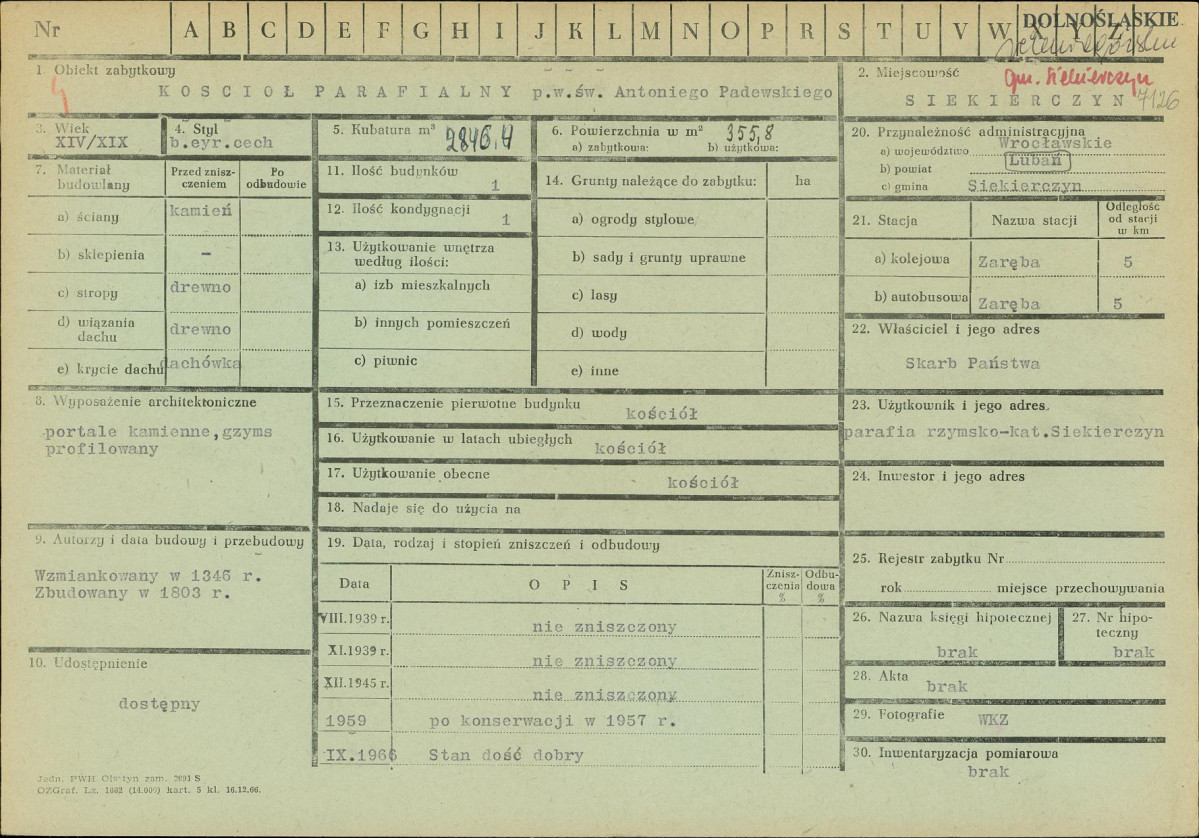 Nr A B C D E F G H I J K L M N O P R S T U V W X Y Z DOLNOŚLĄSKIE
1. Obiekt zabytkowy
KOSCIOŁ PARAFIALNY p.w.św. Antoniego Padewskiego
2. Miejscowość
gm. Siekierczyn
SIEKIERCZYN 7126
3. Wiek
XIV/XIX
4. Styl
b.cyr.cech
5. Kubatura m³ 2846,4
6. Powierzchnia w m² 355,8
a) zabytkowa: b) użytkowa:
7. Materiał budowlany
Przed zniszczeniem
Po odbudowie
a) ściany kamień
b) sklepienia –
c) stropy drewno
d) wiązania dachu drewno
e) krycie dachu dachówka
8. Wyposażenie architektoniczne
portale kamienne,gzyms
profilowany
9. Autorzy i data budowy i przebudowy
Wzmiankowany w 1346 r.
Zbudowany w 1803 r.
10. Udostępnienie
dostępny
11. Ilość budynków 1
12. Ilość kondygnacji 1
13. Użytkowanie wnętrza
według ilości:
a) izb mieszkalnych
b) innych pomieszczeń
c) piwnic
14. Grunty należące do zabytku: ha
a) ogrody stylowe
b) sady i grunty uprawne
c) lasy
d) wody
e) inne
15. Przeznaczenie pierwotne budynku kościół
16. Użytkowanie w latach ubiegłych kościół
17. Użytkowanie obecne kościół
18. Nadaje się do użycia na
19. Data, rodzaj i stopień zniszczeń i odbudowy
Data OPIS Zniszczenia % Odbudowa %
VIII.1939 r. nie zniszczony
XI.1939 r. nie zniszczony
XII.1945 r. nie zniszczony
1959 po konserwacji w 1957 r.
IX.1966 Stan dość dobry
20. Przynależność administracyjna
a) województwo Wrocławskie
b) powiat Lubań
c) gmina Siekierczyn
21. Stacja Nazwa stacji Odległość od stacji w km
a) kolejowa Zaręba 5
b) autobusowa Zaręba 5
22. Właściciel i jego adres
Skarb Państwa
23. Użytkownik i jego adres
parafia rzymsko-kat.Siekierczyn
24. Inwestor i jego adres
25. Rejestr zabytku Nr
rok miejsce przechowywania
26. Nazwa księgi hipotecznej
brak
27. Nr hipoteczny
brak
28. Akta
brak
29. Fotografie WKZ
30. Inwentaryzacja pomiarowa
brak
Jedn. PWH Olsztyn zam. 2091 S
OZGraf. Lz. 1082 (14.000) kart. 5 kl. 16.12.66.